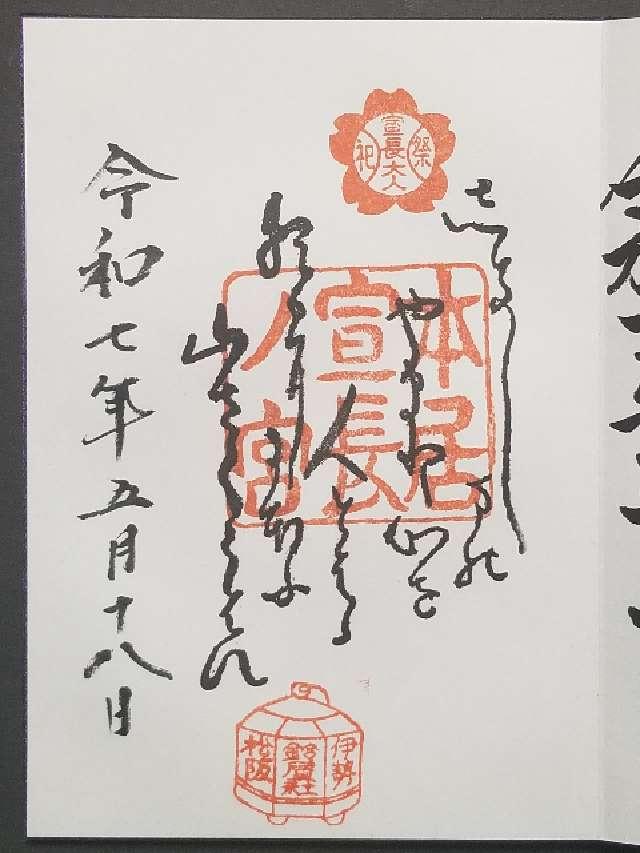 祭
宣長大人
祀
志きしまの
やまと心を
人とはゝ
朝日ににほふ
山さくらはな
本居
宣長
ノ宮
令和七年五月十八日
伊勢
松阪